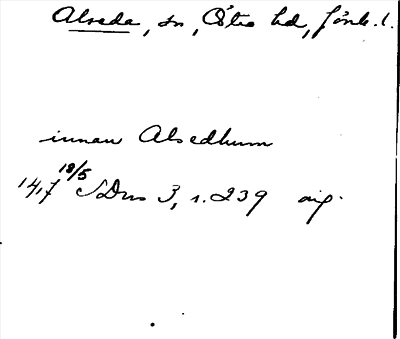 Alseda, sn, Östra hd, Jönk. l.
innan Alsedhum
1417 18/5 SDns 3, s. 239 orig.